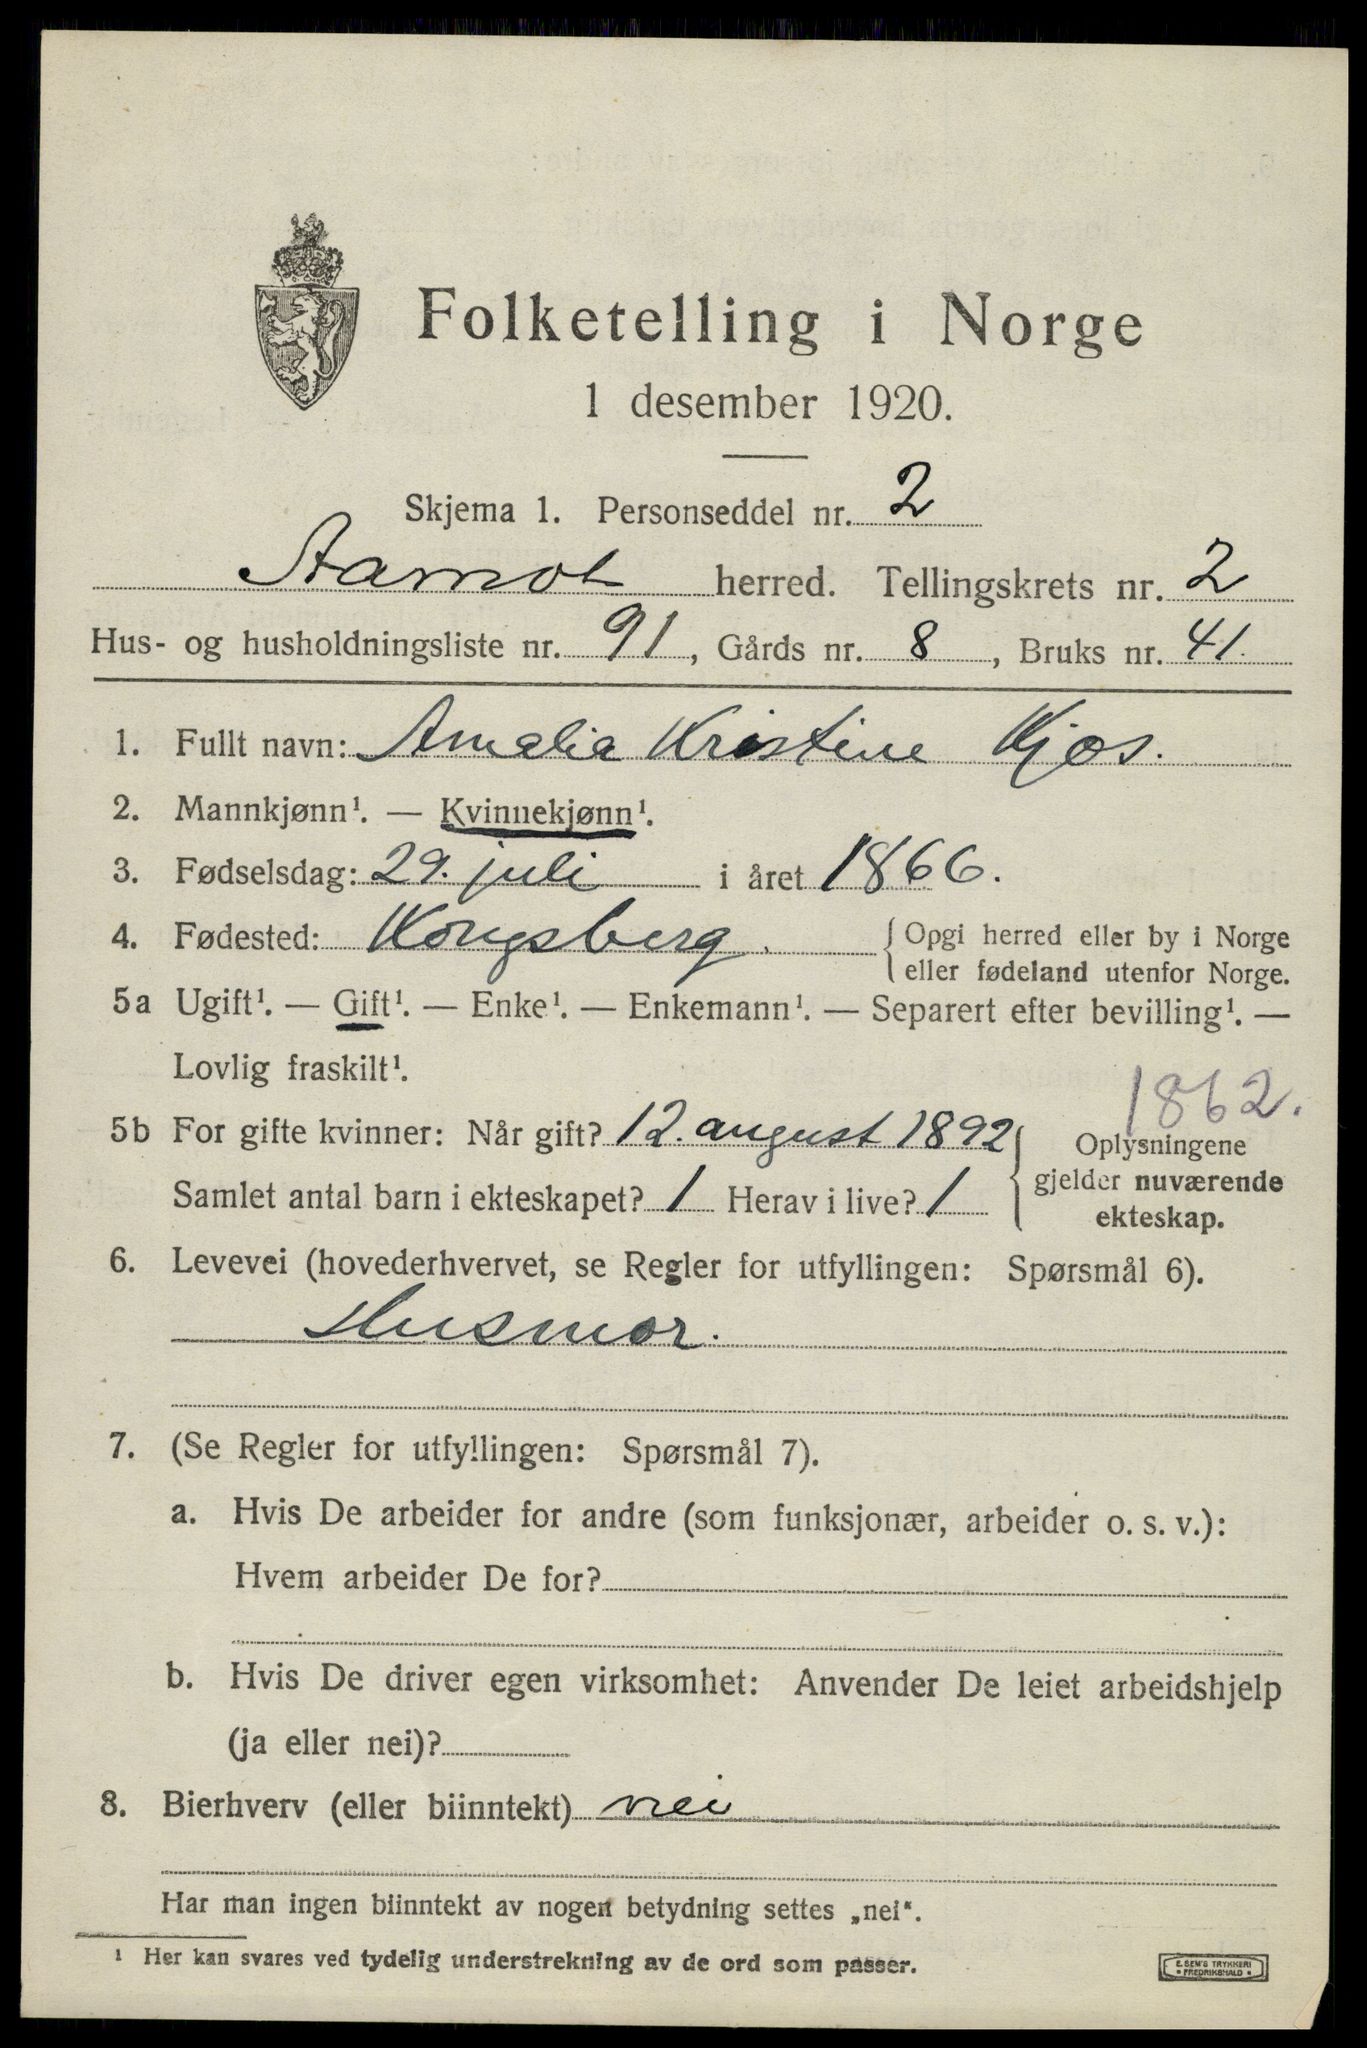 Folketelling i Norge
1 desember 1920.
Skjema 1. Personseddel nr. 2
Aamot herred. Tellingskrets nr. 2
Hus- og husholdningsliste nr. 91, Gårds nr. 8, Bruks nr. 41.
1. Fullt navn: Amalia Kristine Kjos.
2. Mannkjønn¹. — Kvinnekjønn¹.
3. Fødselsdag: 29. juli i året 1866.
4. Fødested: Kongsberg. { Opgi herred eller by i Norge
eller fødeland utenfor Norge.
5a Ugift¹. — Gift¹. — Enke¹. — Enkemann¹. — Separert efter bevilling¹. —
Lovlig fraskilt¹.
1862.
5b For gifte kvinner: Når gift? 12. august 1892 { Oplysningene
gjelder nuværende
Samlet antal barn i ekteskapet? 1 Herav i live? 1
ekteskap.
6. Levevei (hovederhvervet, se Regler for utfyllingen: Spørsmål 6).
Husmor.
7. (Se Regler for utfyllingen: Spørsmål 7).
a. Hvis De arbeider for andre (som funksjonær, arbeider o. s. v.):
Hvem arbeider De for?
b. Hvis De driver egen virksomhet: Anvender De leiet arbeidshjelp
(ja eller nei)?
8. Bierhverv (eller biinntekt) nei
Har man ingen biinntekt av nogen betydning settes „nei“.
¹ Her kan svares ved tydelig understrekning av de ord som passer.
E. SEM'S TRYKKERI
• FREDRIKSHALD •